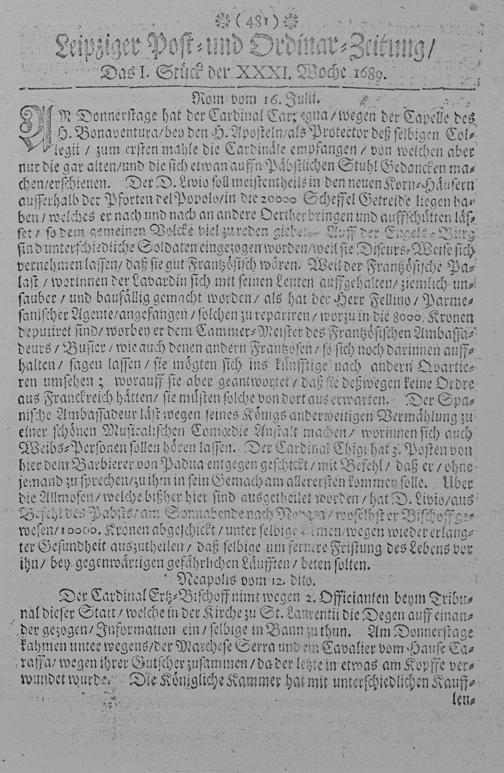 ( 481 )
Leipziger Post- und Ordinar-Zeitung/
Das I. Stück der XXXI. Woche 1689.
Rom vom 16. Julii.
AN Donnerstage hat der Cardinal Carpegna/ wegen der Capelle des
H. Bonaventura/ bey den H. Aposteln/ als Protector deß selbigen Col-
legii / zum ersten mahle die Cardinäle empfangen / von welchen aber
nur die gar alten/ und die sich etwan auffn Päbstlichen Stuhl Gedancken ma-
chen/ erschienen. Der D. Livio soll meistentheils in den neuen Korn-Häusern
ausserhalb der Pforten del Popolo/ in die 20000 Scheffel Getreide liegen ha-
ben / welches er nach und nach an andere Oerther bringen und auffschütten läs-
set / so dem gemeinen Volcke viel zu reden giebet. Auff der Engels-Burg
sind unterschiedliche Soldaten eingezogen worden/ weil sie Discurs-Weise sich
vernehmen lassen/ daß sie gut Frantzösisch wären. Weil der Frantzösische Pa-
last / worinnen der Lavardin sich mit seinen Leuten auffgehalten / ziemlich un-
sauber / und baufällig gemacht worden / als hat der Herr Fellino / Parme-
sanischer Agente/ angefangen / solchen zu repariren / worzu in die 8000. Kronen
deputiret sind/ worbey er dem Cammer-Meister des Frantzösischen Ambassa-
deurs / Busier / wie auch denen andern Frantzosen / so sich noch darinnen auff-
halten / sagen lassen / sie mögten sich ins künfftige nach andern Quartie-
ren umsehen ; worauff sie aber geantwortet / daß sie deßwegen keine Ordre
aus Franckreich hätten / sie müsten solche von dort aus erwarten. Der Spa-
nische Ambassadeur läst wegen seines Königs anderweitigen Vermählung zu
einer schönen Musicalischen Comœdie Anstalt machen / worinnen sich auch
Weibs-Personen sollen hören lassen. Der Cardinal Chigi hat 3. Posten von
hier dem Barbierer von Padua entgegen geschickt / mit Befehl / daß er / ohne
jemand zu sprechen/ zu ihm in sein Gemach am allerersten kommen solle. Uber
die Allmosen / welche bißher hier sind ausgetheilet worden / hat D. Livio/ aus
Befehl des Pabsts/ am Sonnabende nach / woselbst er Bischoff ge-
wesen/ 10000. Kronen abgeschickt / unter selbige Armen/ wegen wieder erlang-
ter Gesundheit auszutheilen / daß selbige um fernere Fristung des Lebens vor
ihn / bey gegenwärtigen gefährlichen Läufften / beten solten.
Neapolis vom 12. dito.
Der Cardinal Ertz-Bischoff nimt wegen 2. Officianten beym Tribu-
nal dieser Statt / welche in der Kirche zu St. Laurentii die Degen auff einan-
der gezogen/ Information ein / selbige in Bann zu thun. Am Donnerstage
kahmen unter wegens/ der Marchese Serra und ein Cavalier vom Hause Ca-
raffa/ wegen ihrer Gutscher zusammen / da der letzte in etwas am Kopffe ver-
wundet wurde. Die Königliche Kammer hat mit unterschiedlichen Kauff-
len-